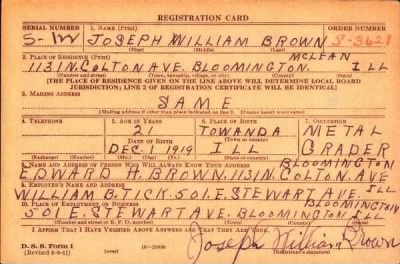 REGISTRATION CARD
SERIAL NUMBER 1. NAME (Print) ORDER NUMBER
S-122 JOSEPH WILLIAM BROWN S-3621
(First) (Middle) (Last)
2. PLACE OF RESIDENCE (Print) MCLEAN
1131 N. COLTON AVE. BLOOMINGTON. ILL
(Number and street) (Town, township, village, or city) (County) (State)
[THE PLACE OF RESIDENCE GIVEN ON THE LINE ABOVE WILL DETERMINE LOCAL BOARD
JURISDICTION; LINE 2 OF REGISTRATION CERTIFICATE WILL BE IDENTICAL]
3. MAILING ADDRESS
SAME
[Mailing address if other than place indicated on line 2. If same insert word same]
4. TELEPHONE 5. AGE IN YEARS 6. PLACE OF BIRTH 7. OCCUPATION
21 TOWANDA METAL
DATE OF BIRTH (Town or county)
DEC. 1 1919 ILL GRADER
(Exchange) (Number) (Mo.) (Day) (Yr.) (State or country)
8. NAME AND ADDRESS OF PERSON WHO WILL ALWAYS KNOW YOUR ADDRESS BLOOMINGTON
EDWARD H. BROWN, 1131 N. COLTON. AVE
9. EMPLOYER'S NAME AND ADDRESS ILL
WILLIAM B. TICK. 501 E. STEWART AVE.
10. PLACE OF EMPLOYMENT OR BUSINESS BLOOMINGTON
501 E. STEWART AVE. BLOOMINGTON ILL
(Number and street or R. F. D. number) (Town) (County) (State)
I AFFIRM THAT I HAVE VERIFIED ABOVE ANSWERS AND THAT THEY ARE TRUE.
D. S. S. Form 1
(Revised 6-9-41) Joseph William Brown